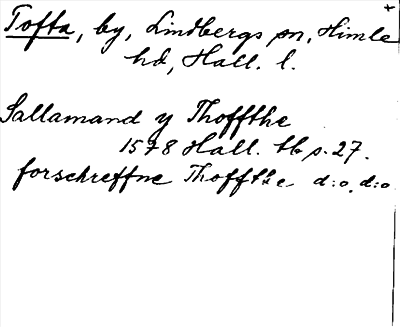 Tofta, by, Lindbergs sn, Himle
hd, Hall. l.
Sallamand y Thoffthe
1578 Hall. tb s. 27.
forschreffne Thoffthe d:o. d:o